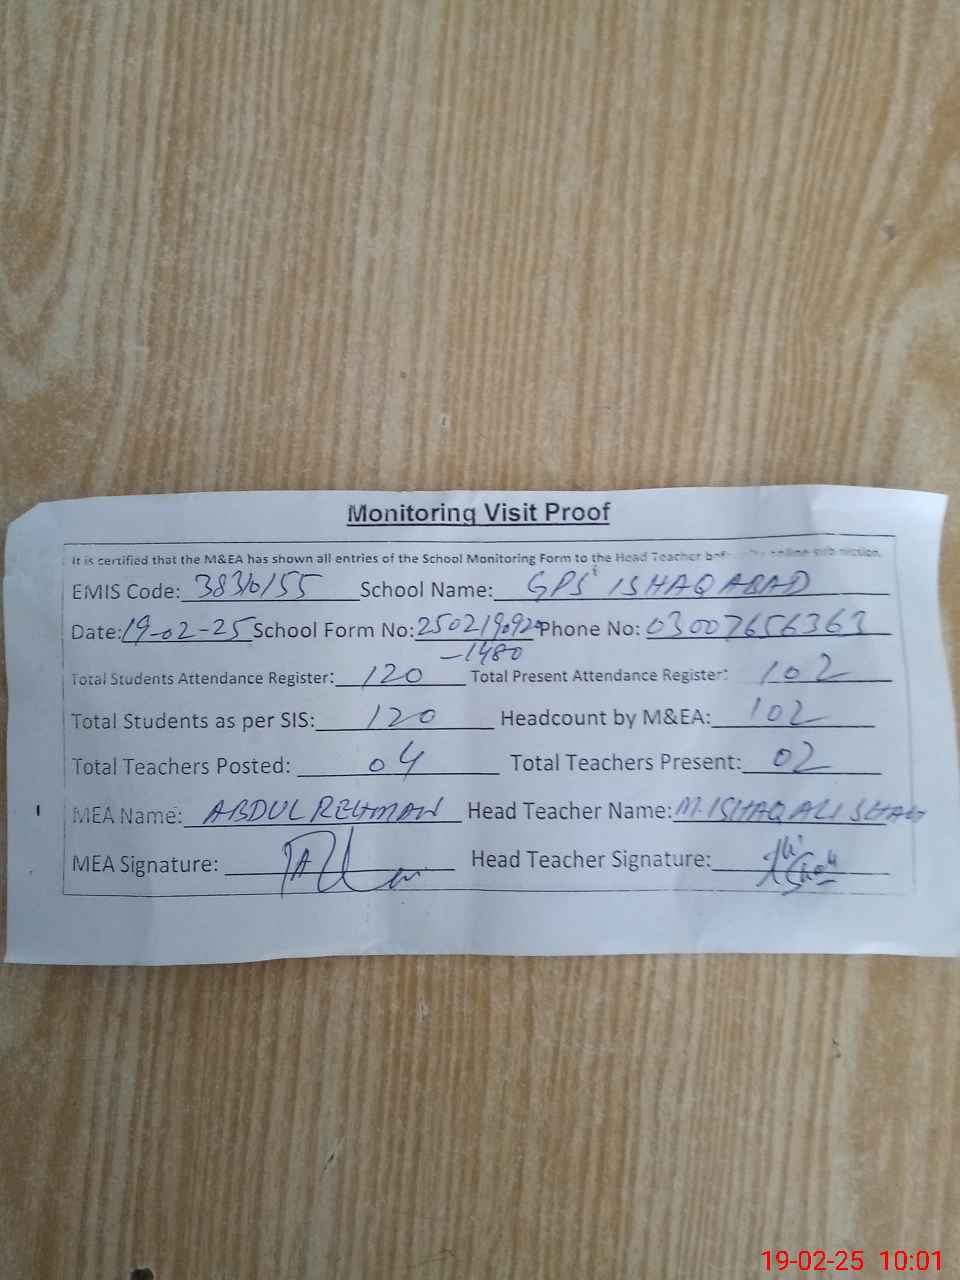 Monitoring Visit Proof
It is certified that the M&EA has shown all entries of the School Monitoring Form to the Head Teacher before online submission.
EMIS Code: 38310155 School Name: GPS ISHAQ ABAD
Date: 19-02-25 School Form No: 250219092 Phone No: 03007656363
-1480
Total Students Attendance Register: 120 Total Present Attendance Register: 102
Total Students as per SIS: 120 Headcount by M&EA: 102
Total Teachers Posted: 04 Total Teachers Present: 02
MEA Name: ABDUL REHMAN Head Teacher Name: M. ISHAQ ALI SHAH
MEA Signature: Head Teacher Signature:
19-02-25 10:01